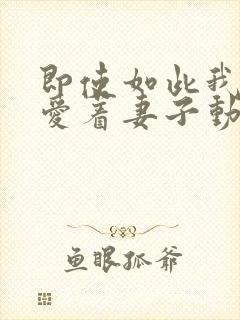 即使如此我
愛着妻子動
鱼眼孤爷